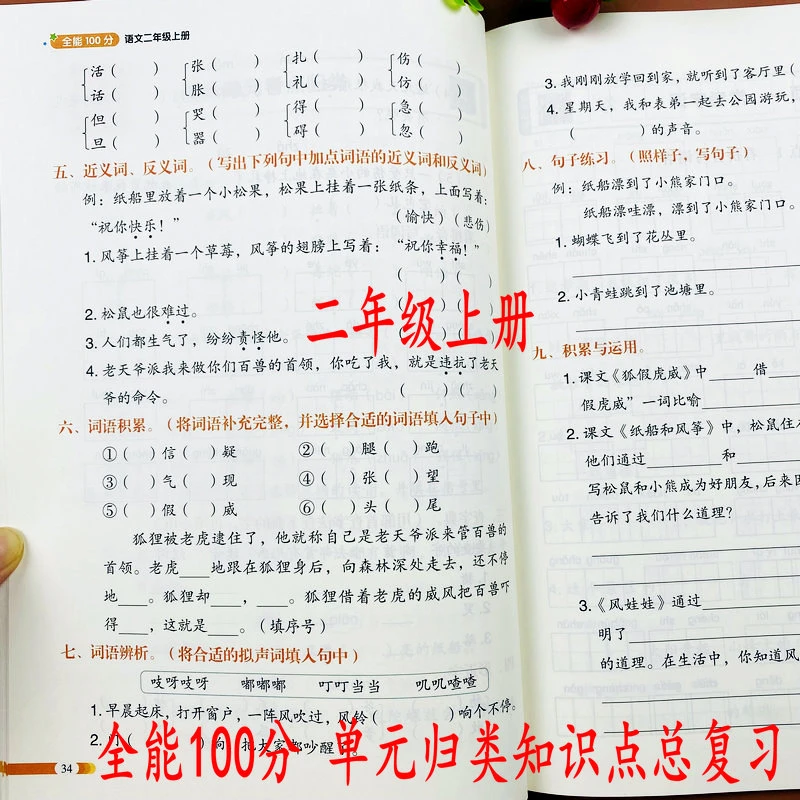 全能100分 语文二年级上册
活（ ） 张（ ） 扎（ ） 伤（ ）
话（ ） 胀（ ） 礼（ ） 仿（ ）
但（ ） 哭（ ） 得（ ） 急（ ）
旦（ ） 器（ ） 碍（ ） 忽（ ）
五、近义词、反义词。（写出下列句中加点词语的近义词和反义词）
例：纸船里放着一个小松果，松果上挂着一张纸条，上面写着：
“祝你快乐！” （愉快）（悲伤）
1. 风筝上挂着一个草莓，风筝的翅膀上写着：“祝你幸福！”
（ ）（ ）
2. 松鼠也很难过。
3. 人们都生气了，纷纷责怪他。
4. 老天爷派我来做你们百兽的首领，你吃了我，就是违抗了老天
爷的命令。 （ ）（ ）
六、词语积累。（将词语补充完整，并选择合适的词语填入句子中）
①（ ）信（ ）疑 ②（ ）腿（ ）跑
③（ ）气（ ）现 ④（ ）张（ ）望
⑤（ ）假（ ）威 ⑥（ ）头（ ）尾
狐狸被老虎逮住了，他就称自己是老天爷派来管百兽的
首领。老虎____地跟在狐狸身后，向森林深处走去，还不停
地____。狐狸却____，____。狐狸借着老虎的威风把百兽吓
得____，这就是____。（填序号）
七、词语辨析。（将合适的拟声词填入句中）
吱呀吱呀 嘟嘟嘟 叮叮当当 叽叽喳喳
1. 早晨起床，打开窗户，一阵风吹过，风铃（ ）响个不停。
2. 门（ ）响，把大家都吵醒了。
34
3. 我刚刚放学回到家，就听到了客厅里（
4. 星期天，我和表弟一起去公园游玩，
（ ）的声音。
八、句子练习。（照样子，写句子）
例：纸船漂到了小熊家门口。
纸船漂哇漂，漂到了小熊家门口。
1. 蝴蝶飞到了花丛里。
2. 小青蛙跳到了池塘里。
九、积累与运用。
1. 课文《狐假虎威》中____借____
假虎威”一词比喻____
2. 课文《纸船和风筝》中，松鼠住
他们通过____和____
写松鼠和小熊成为好朋友，后来因
告诉了我们什么道理？
3.《风娃娃》通过____
明了____
的道理。在生活中，你知道风
二年级上册
全能100分 单元归类知识点总复习